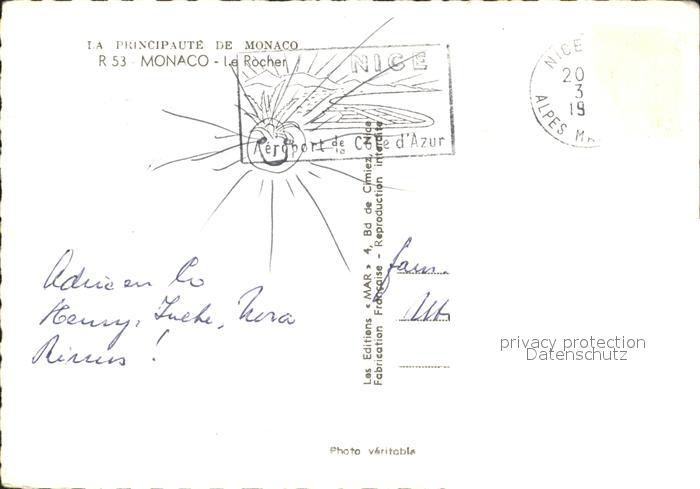 LA PRINCIPAUTÉ DE MONACO
R 53 - MONACO - Le Rocher
NICE
Aéroport de la Côte d'Azur
NICE
20
3
19
ALPES M
Les Editions "MAR" 4, Bd de Cimiez, Nice
Fabrication Française - Reproduction interdite
Henny, Nora
privacy protection
Datenschutz
Photo véritable